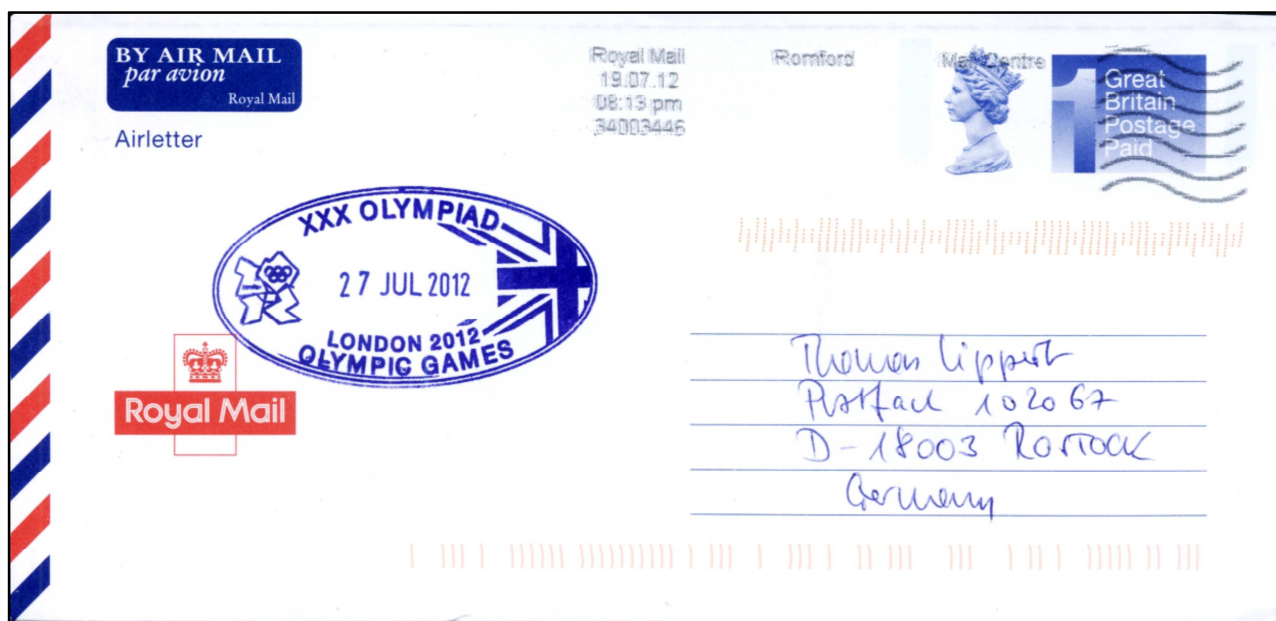 BY AIR MAIL
par avion
Royal Mail
Airletter
Royal Mail Romford Mail Centre
19.07.12
08:13 pm
34003446
1 Great
Britain
Postage
Paid
XXX OLYMPIAD
27 JUL 2012
LONDON 2012
OLYMPIC GAMES
Royal Mail
Thomas Lippert
Postfach 102067
D-18003 ROSTOCK
Germany